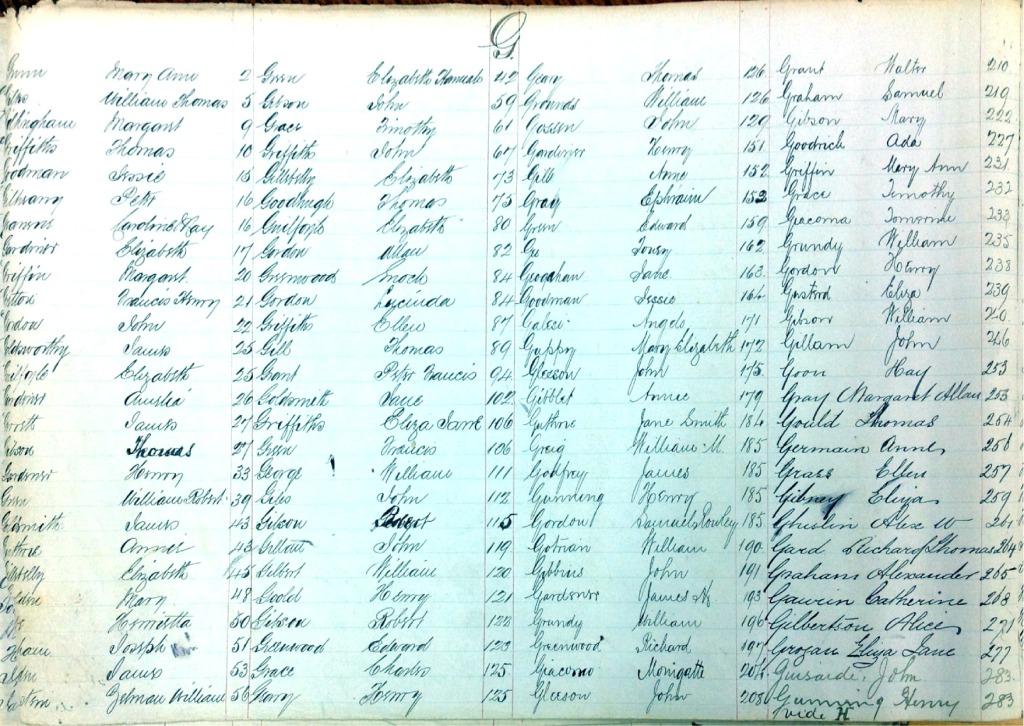 G.
Mary Ann 2 Green Elizabeth Hannah 42 Geary Thomas 126 Grant Walter 210
William Thomas 5 Gibson John 59 Grounds William 126 Graham Samuel 219
Margaret 9 Grace Timothy 61 John 129 Gibson Mary 222
Griffiths Thomas 10 Griffiths John 67 Gardener Henry 151 Goodrich Ada 227
Godman Jessie 15 Gillesby Elizabeth 73 Gill Anne 152 Griffin Mary Ann 231
Peter 16 Goodhugh Thomas 75 Gray Ephraim 153 Grace Timothy 232
Caroline 16 Guilfoyle Elizabeth 80 Green Edward 159 Giacoma 233
Gardiner Elizabeth 17 Gordon Allan 82 162 Grundy William 235
Griffin Margaret 20 Greenwood Enoch 84 Geoghan Jane 163 Gordon Henry 238
Francis Henry 21 Gordon Lucinda 84 Goodman Jessie 164 Eliza 239
Gordon John 22 Griffiths Ellen 87 Angelo 171 Gibson William 240
Goldsworthy James 25 Gill Thomas 89 Guppy Mary Elizabeth 172 Gillam John 246
Guilfoyle Elizabeth 25 Grant Peter Francis 94 Gleeson John 175 Goon Hay 253
26 Goldsmith Jane 102 Gibblet Annie 179 Gray Margaret Allan 253
James 27 Griffiths Eliza Jane 106 Guthrie Jane Smith 184 Gould Thomas 254
Gibson Thomas 27 Green Francis 106 Greig William M. 185 Germain Anne 256
Gardener Henry 33 George William 111 Godfrey James 185 Grass Ellen 257
Green William Robert 39 Giles John 112 Gunning Henry 185 Gibney Eliza 259
Goldsmith James 43 Gibson Robert 115 Gordon Samuel Rowley 185 Ghislin Alex W 261
Guthrie Annie 43 John 119 William 190 Gard Richard Thomas 264
Gillesby Elizabeth 45 Gilbert William 120 Gibbins John 191 Graham Alexander 265
Mary 48 Goold Henry 121 Gardener James H 193 Gawrin Catherine 268
Henrietta 50 Gibson Robert 122 Grundy William 196 Gilbertson Alice 271
Joseph 51 Greenwood Edward 123 Greenwood Richard 197 Grogan Eliza Jane 277
James 53 Grace Charles 125 Giacomo Monigatti 204 John 283
William 56 Henry 125 Gleeson John 208 Gunning Henry 283
vide H